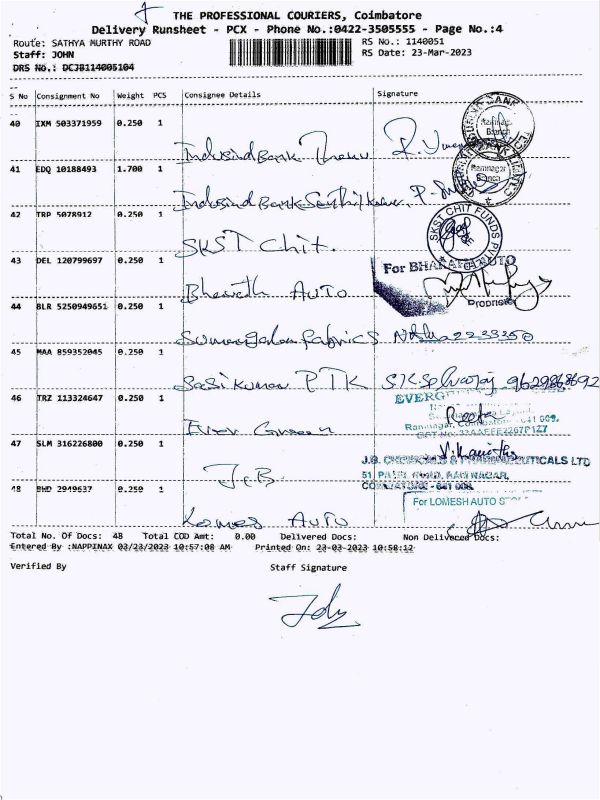 THE PROFESSIONAL COURIERS, Coimbatore
Delivery Runsheet - PCX - Phone No.:0422-3505555 - Page No.:4
Route: SATHYA MURTHY ROAD RS No.: 1140051
Staff: JOHN RS Date: 23-Mar-2023
DRS No.: DCJB114005104
S No Consignment No Weight PCS Consignee Details Signature
40 IXM 503371959 0.250 1
Indusind Bank
41 EDQ 10188493 1.700 1
Indusind Bank Senthil kumar
42 TRP 5078912 0.250 1
SKST Chit.
SKST CHIT FUNDS PVT
43 DEL 120799697 0.250 1
For BHARATH AUTO
Bharath Auto
Proprietor
44 BLR 5250949651 0.250 1
Sumangalam fabrics
45 MAA 859352045 0.250 1
Sasi kumar PTK S.K. Selvaraj 9629868692
46 TRZ 113324647 0.250 1
Ramnagar, Coimbatore - 641 009.
Ever Green
47 SLM 316226800 0.250 1
J.B. CHEMICALS & PHARMACEUTICALS LTD
J.C.B
51, RAMNAGAR,
COIMBATORE - 641 009.
48 BHD 2949637 0.250 1
For LOMESH AUTO
Lomes Auto
Total No. Of Docs: 48 Total COD Amt: 0.00 Delivered Docs: Non Delivered Docs:
Entered By :NAPPINAX 03/23/2023 10:57:08 AM Printed On: 23-03-2023 10:58:12
Verified By Staff Signature